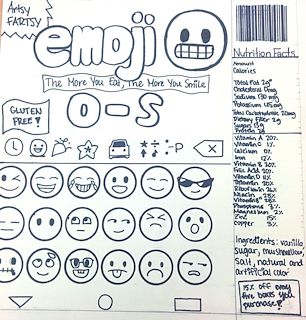 Artsy
FARTSY
emoji
The More You Eat, The More You Smile
O-S
GLUTEN
FREE!
:-P
Nutrition Facts
Amount
Calories
Total Fat 2g
Cholesterol 0mg
Sodium 130 mg
Potassium 105 mg
Total Carbohydrate 20mg
Dietary Fiber 2g
Sugars 13g
Protein 2g
Vitamin A 20%
Vitamin C 1%
Calcium 0%
Iron 12%
Vitamin B 20%
Folic Acid 20%
Vitamin D 11%
Riboflavin 26%
Niacin 25%
Phosphorus 3%
Magnesium 2%
Zinc 15%
Copper 3%
Ingredients: vanilla
sugar, mushmallow,
salt, natural and
artificial color
15% off every
five boxes you
purchase!!